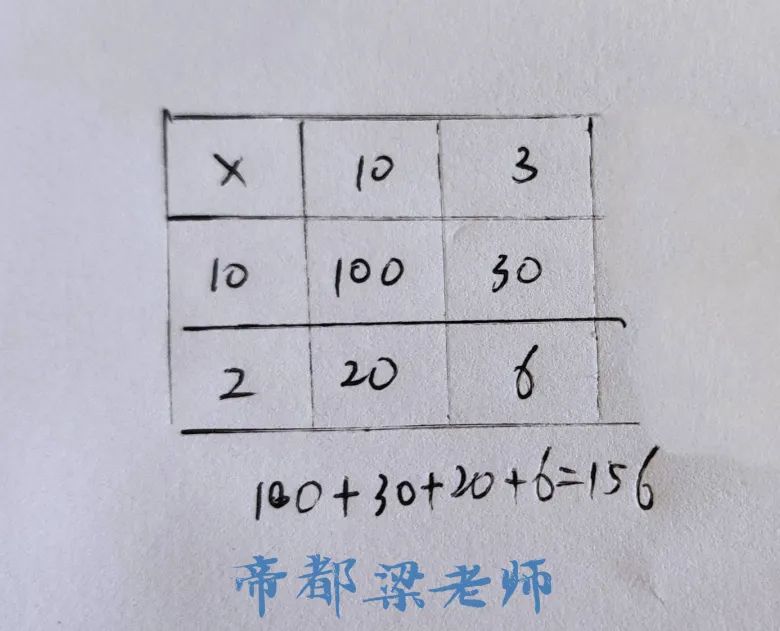 × 10 3
10 100 30
2 20 6
100+30+20+6=156
帝都梁老师